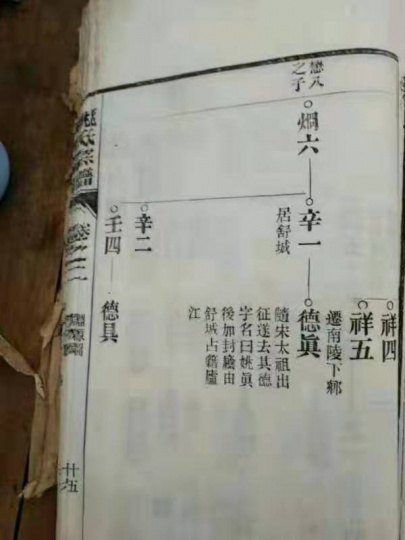 祥四
祥五
遷南陵下鄉
八
之子
六
辛一
德眞
居舒城
隨宋太祖出
征遂去其德
字名曰姚眞
後加封由
舒城占籍廬
江
辛二
壬四
德具
姚氏宗譜
廿五